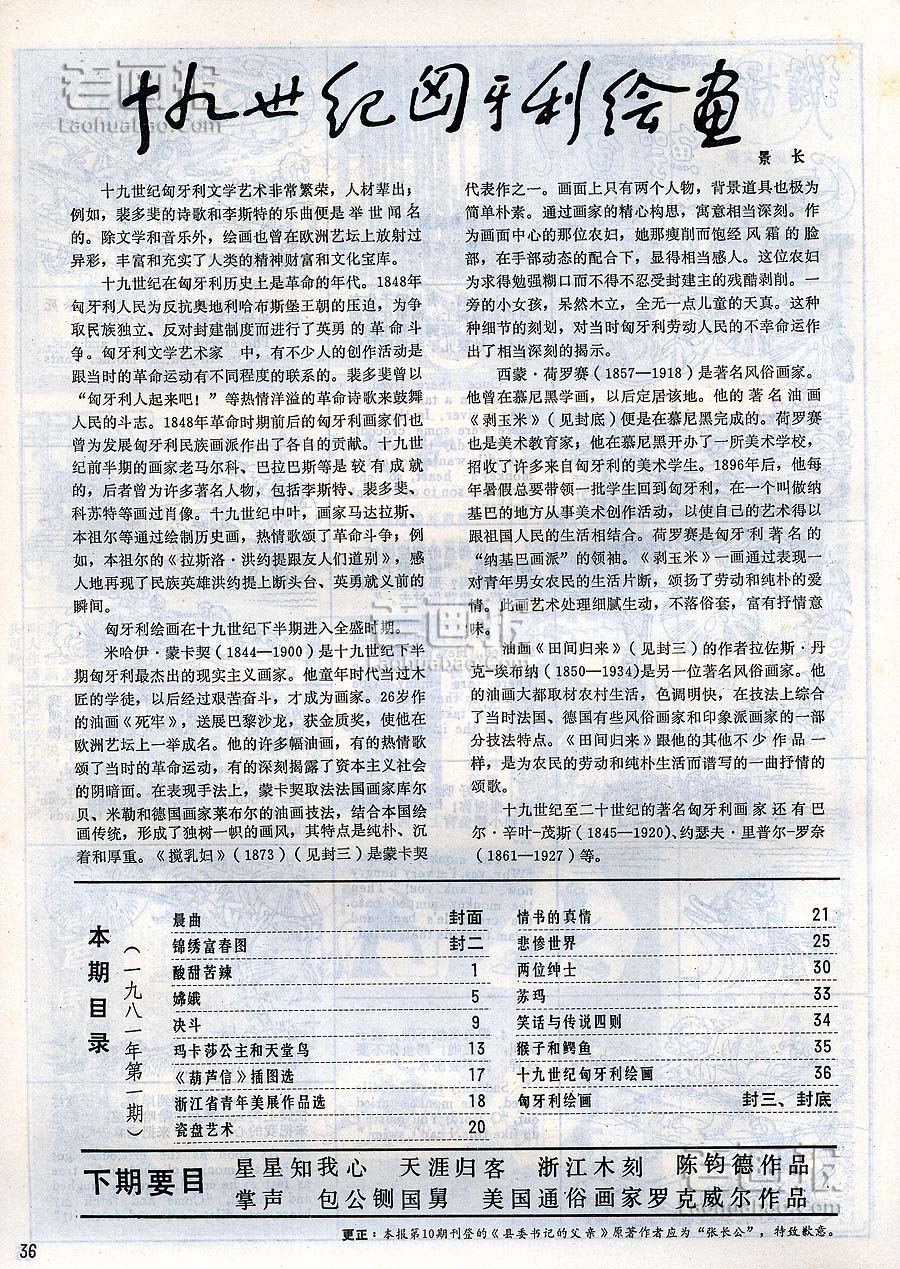 十九世纪匈牙利绘画
景 长
十九世纪匈牙利文学艺术非常繁荣，人材辈出，
例如，裴多斐的诗歌和李斯特的乐曲便是举世闻名
的。除文学和音乐外，绘画也曾在欧洲艺坛上放射过
异彩，丰富和充实了人类的精神财富和文化宝库。
十九世纪在匈牙利历史上是革命的年代。1848年
匈牙利人民为反抗奥地利哈布斯堡王朝的压迫，为争
取民族独立、反对封建制度而进行了英勇的革命斗
争。匈牙利文学艺术家 中，有不少人的创作活动是
跟当时的革命运动有不同程度的联系的。裴多斐曾以
“匈牙利人起来吧！”等热情洋溢的革命诗歌来鼓舞
人民的斗志。1848年革命时期前后的匈牙利画家们也
曾为发展匈牙利民族画派作出了各自的贡献。十九世
纪前半期的画家老马尔科、巴拉巴斯等是较有成就
的，后者曾为许多著名人物，包括李斯特、裴多斐、
科苏特等画过肖像。十九世纪中叶，画家马达拉斯、
本祖尔等通过绘制历史画，热情歌颂了革命斗争；例
如，本祖尔的《拉斯洛·洪约提跟友人们道别》，感
人地再现了民族英雄洪约提上断头台、英勇就义前的
瞬间。
匈牙利绘画在十九世纪下半期进入全盛时期。
米哈伊·蒙卡契（1844—1900）是十九世纪下半
期匈牙利最杰出的现实主义画家。他童年时代当过木
匠的学徒，以后经过艰苦奋斗，才成为画家。26岁作
的油画《死牢》，送展巴黎沙龙，获金质奖，使他在
欧洲艺坛上一举成名。他的许多幅油画，有的热情歌
颂了当时的革命运动，有的深刻揭露了资本主义社会
的阴暗面。在表现手法上，蒙卡契取法法国画家库尔
贝、米勒和德国画家莱布尔的油画技法，结合本国绘
画传统，形成了独树一帜的画风，其特点是纯朴、沉
着和厚重。《搅乳妇》（1873）（见封三）是蒙卡契
代表作之一。画面上只有两个人物，背景道具也极为
简单朴素。通过画家的精心构思，寓意相当深刻。作
为画面中心的那位农妇，她那瘦削而饱经风霜的脸
部，在手部动态的配合下，显得相当感人。这位农妇
为求得勉强糊口而不得不忍受封建主的残酷剥削。一
旁的小女孩，呆然木立，全无一点儿童的天真。这种
种细节的刻划，对当时匈牙利劳动人民的不幸命运作
出了相当深刻的揭示。
西蒙·荷罗赛（1857—1918）是著名风俗画家。
他曾在慕尼黑学画，以后定居该地。他的著名油画
《剥玉米》（见封底）便是在慕尼黑完成的。荷罗赛
也是美术教育家；他在慕尼黑开办了一所美术学校，
招收了许多来自匈牙利的美术学生。1896年后，他每
年暑假总要带领一批学生回到匈牙利，在一个叫做纳
基巴的地方从事美术创作活动，以使自己的艺术得以
跟祖国人民的生活相结合。荷罗赛是匈牙利著名的
“纳基巴画派”的领袖。《剥玉米》一画通过表现一
对青年男女农民的生活片断，颂扬了劳动和纯朴的爱
情。此画艺术处理细腻生动，不落俗套，富有抒情意
味。
油画《田间归来》（见封三）的作者拉佐斯·丹
克-埃布纳（1850—1934)是另一位著名风俗画家。他
的油画大都取材农村生活，色调明快，在技法上综合
了当时法国、德国有些风俗画家和印象派画家的一部
分技法特点。《田间归来》跟他的其他不少作品一
样，是为农民的劳动和纯朴生活而谱写的一曲抒情的
颂歌。
十九世纪至二十世纪的著名匈牙利画家还有巴
尔·辛叶-茂斯（1845—1920）、约瑟夫·里普尔-罗奈
（1861—1927）等。
本期目录
（一九八一年第一期）
晨曲 封面
锦绣富春图 封二
酸甜苦辣 1
嫦娥 5
决斗 9
玛卡莎公主和天堂鸟 13
《葫芦信》插图选 17
浙江省青年美展作品选 18
瓷盘艺术 20
情书的真情 21
悲惨世界 25
两位绅士 30
苏玛 33
笑话与传说四则 34
猴子和鳄鱼 35
十九世纪匈牙利绘画 36
匈牙利绘画 封三、封底
下期要目
星星知我心 天涯归客 浙江木刻 陈钧德作品
掌声 包公铡国舅 美国通俗画家罗克威尔作品
更正：本报第10期刊登的《县委书记的父亲》原著作者应为“张长公”，特致歉意。
36
老画报
laohuabao.com